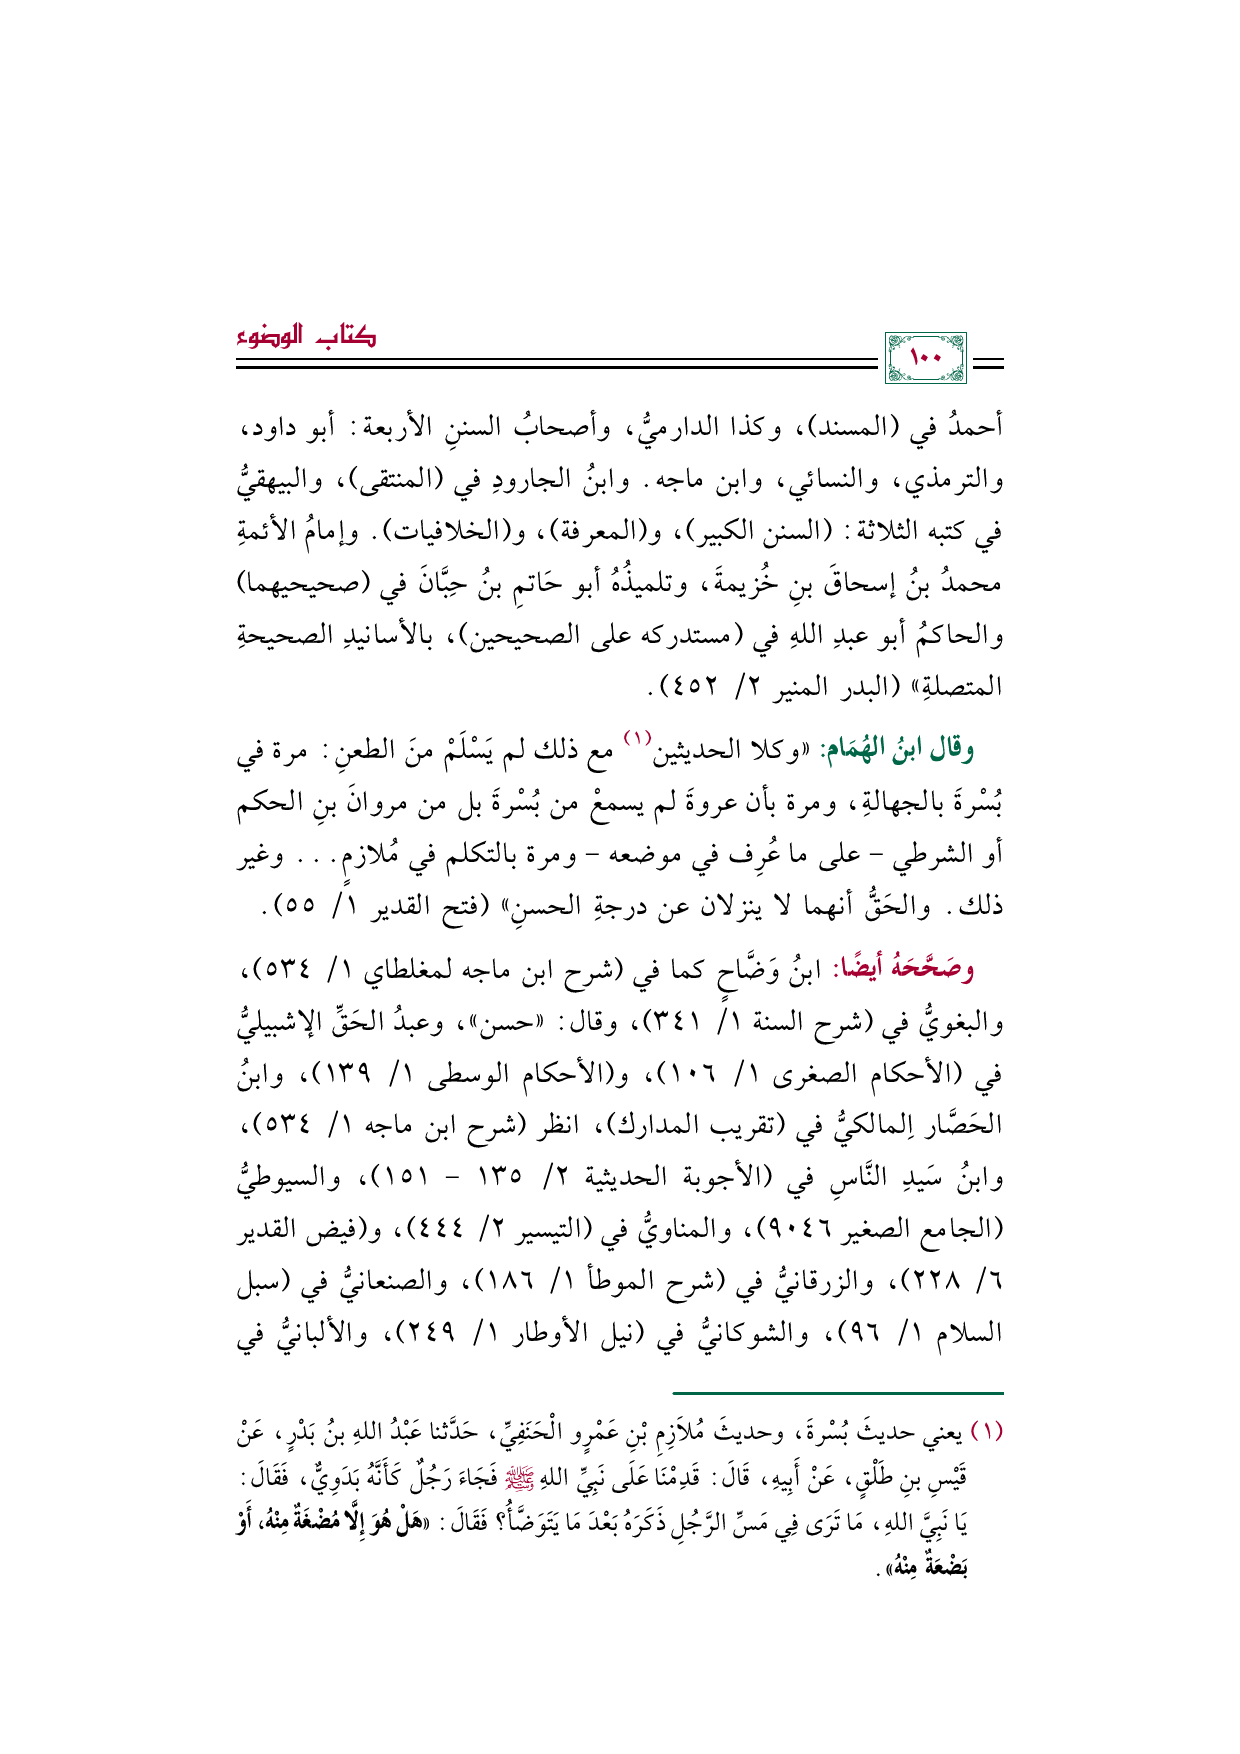 كتاب الوضوء
١٠٠
أحمدُ في (المسند)، وكذا الدارميُّ، وأصحابُ السننِ الأربعة: أبو داود،
والترمذي، والنسائي، وابن ماجه. وابنُ الجارودِ في (المنتقى)، والبيهقيُّ
في كتبه الثلاثة: (السنن الكبير)، و(المعرفة)، و(الخلافيات). وإمامُ الأئمةِ
محمدُ بنُ إسحاقَ بنِ خُزيمةَ، وتلميذُهُ أبو حَاتمِ بنُ حِبَّانَ في (صحيحيهما)
والحاكمُ أبو عبدِ اللهِ في (مستدركه على الصحيحين)، بالأسانيدِ الصحيحةِ
المتصلةِ» (البدر المنير ٢/ ٤٥٢).
وقال ابنُ الهُمَام: «وكلا الحديثين(١) مع ذلك لم يَسْلَمْ منَ الطعنِ: مرة في
بُسْرةَ بالجهالةِ، ومرة بأن عروةَ لم يسمعْ من بُسْرةَ بل من مروانَ بنِ الحكم
أو الشرطي – على ما عُرِف في موضعه – ومرة بالتكلم في مُلازمٍ... وغير
ذلك. والحَقُّ أنهما لا ينزلان عن درجةِ الحسنِ» (فتح القدير ١/ ٥٥).
وصَحَّحَهُ أيضًا: ابنُ وَضَّاحٍ كما في (شرح ابن ماجه لمغلطاي ١/ ٥٣٤)،
والبغويُّ في (شرح السنة ١/ ٣٤١)، وقال: «حسن»، وعبدُ الحَقِّ الإشبيليُّ
في (الأحكام الصغرى ١/ ١٠٦)، و(الأحكام الوسطى ١/ ١٣٩)، وابنُ
الحَصَّارِ المالكيُّ في (تقريب المدارك)، انظر (شرح ابن ماجه ١/ ٥٣٤)،
وابنُ سَيدِ النَّاسِ في (الأجوبة الحديثية ٢/ ١٣٥ – ١٥١)، والسيوطيُّ
(الجامع الصغير ٩٠٤٦)، والمناويُّ في (التيسير ٢/ ٤٤٤)، و(فيض القدير
٦/ ٢٢٨)، والزرقانيُّ في (شرح الموطأ ١/ ١٨٦)، والصنعانيُّ في (سبل
السلام ١/ ٩٦)، والشوكانيُّ في (نيل الأوطار ١/ ٢٤٩)، والألبانيُّ في
(١) يعني حديثَ بُسْرةَ، وحديثَ مُلاَزِمِ بْنِ عَمْرٍو الْحَنَفِيِّ، حَدَّثنا عَبْدُ اللهِ بنُ بَدْرٍ، عَنْ
قَيْسِ بنِ طَلْقٍ، عَنْ أَبِيهِ، قَالَ: قَدِمْنَا عَلَى نَبِيِّ اللهِ ﷺ فَجَاءَ رَجُلٌ كَأَنَّهُ بَدَوِيٌّ، فَقَالَ:
يَا نَبِيَّ اللهِ، مَا تَرَى فِي مَسِّ الرَّجُلِ ذَكَرَهُ بَعْدَ مَا يَتَوَضَّأُ؟ فَقَالَ: «هَلْ هُوَ إِلَّا مُضْغَةٌ مِنْهُ، أَوْ
بَضْعَةٌ مِنْهُ».